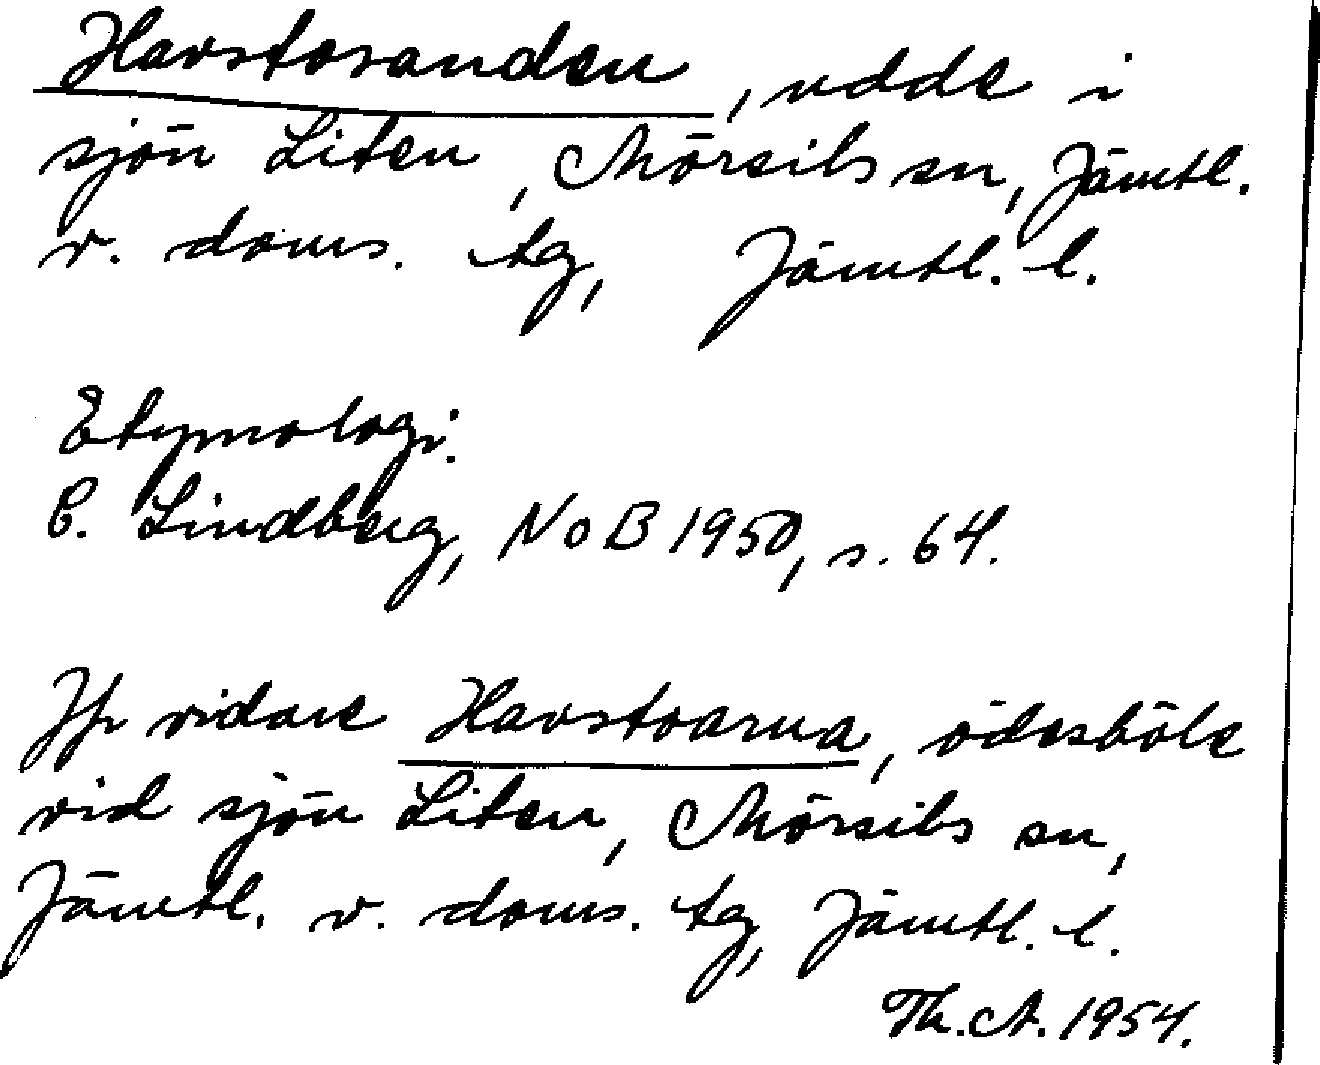 Havstosanden, udde i
sjön Liten, Mörsils sn, Jämtl.
v. doms. tg, Jämtl. l.
Etymologi.
C. Lindberg, NoB 1950, s. 64.
Jfr vidare Havstoarna, ödesböle
vid sjön Liten, Mörsils sn,
Jämtl. v. doms. tg, Jämtl. l.
Th. A. 1954.